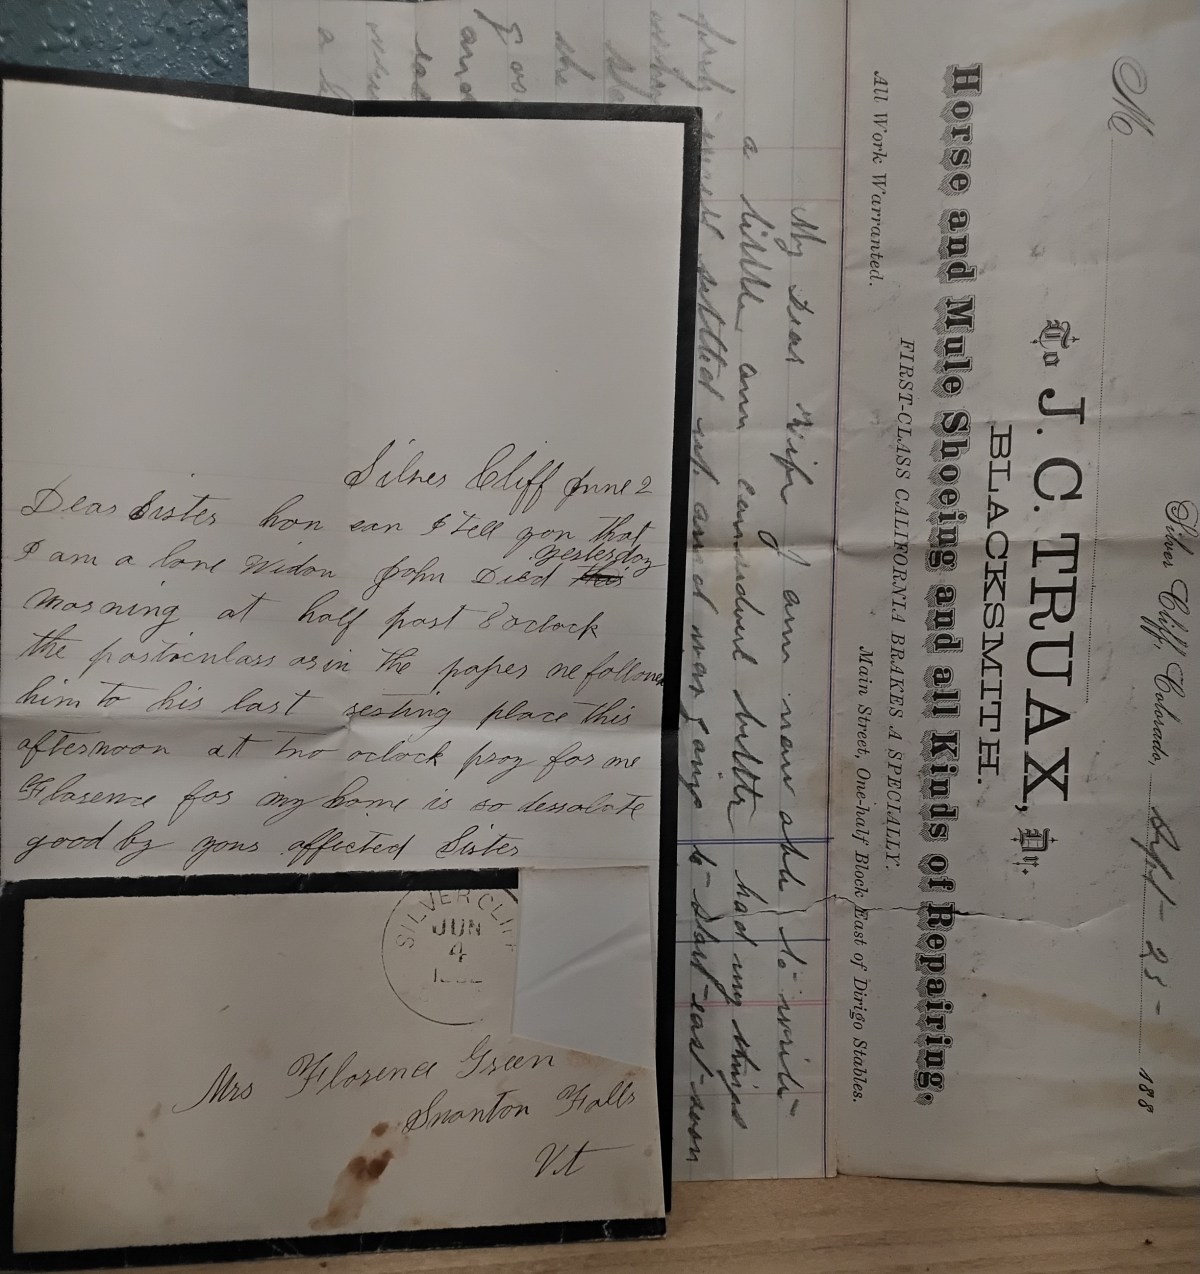 Silver Cliff June 2
Dear Sister how can I tell you that
yesterday
I am a lone Widow John Died this
morning at half past 8 oclock
the particulars as in the paper we followed
him to his last resting place this
afternoon at two oclock pray for me
Florence for my home is so dessolate
good by your afficted Sister
SILVER CLIFF
JUN
4
Mrs Florence Green
Swanton Falls
Vt
My Dear Wife I am now able to write
a little am considerd better had my things
pretty well settled up and was going to start east soon
and
the
a
Silver Cliff, Colorado, Sept 25 188
M
To J. C. TRUAX, Dr.
BLACKSMITH.
Horse and Mule Shoeing and all Kinds of Repairing.
FIRST-CLASS CALIFORNIA BRAKES A SPECIALLY.
All Work Warranted. Main Street, One-half Block East of Dirigo Stables.